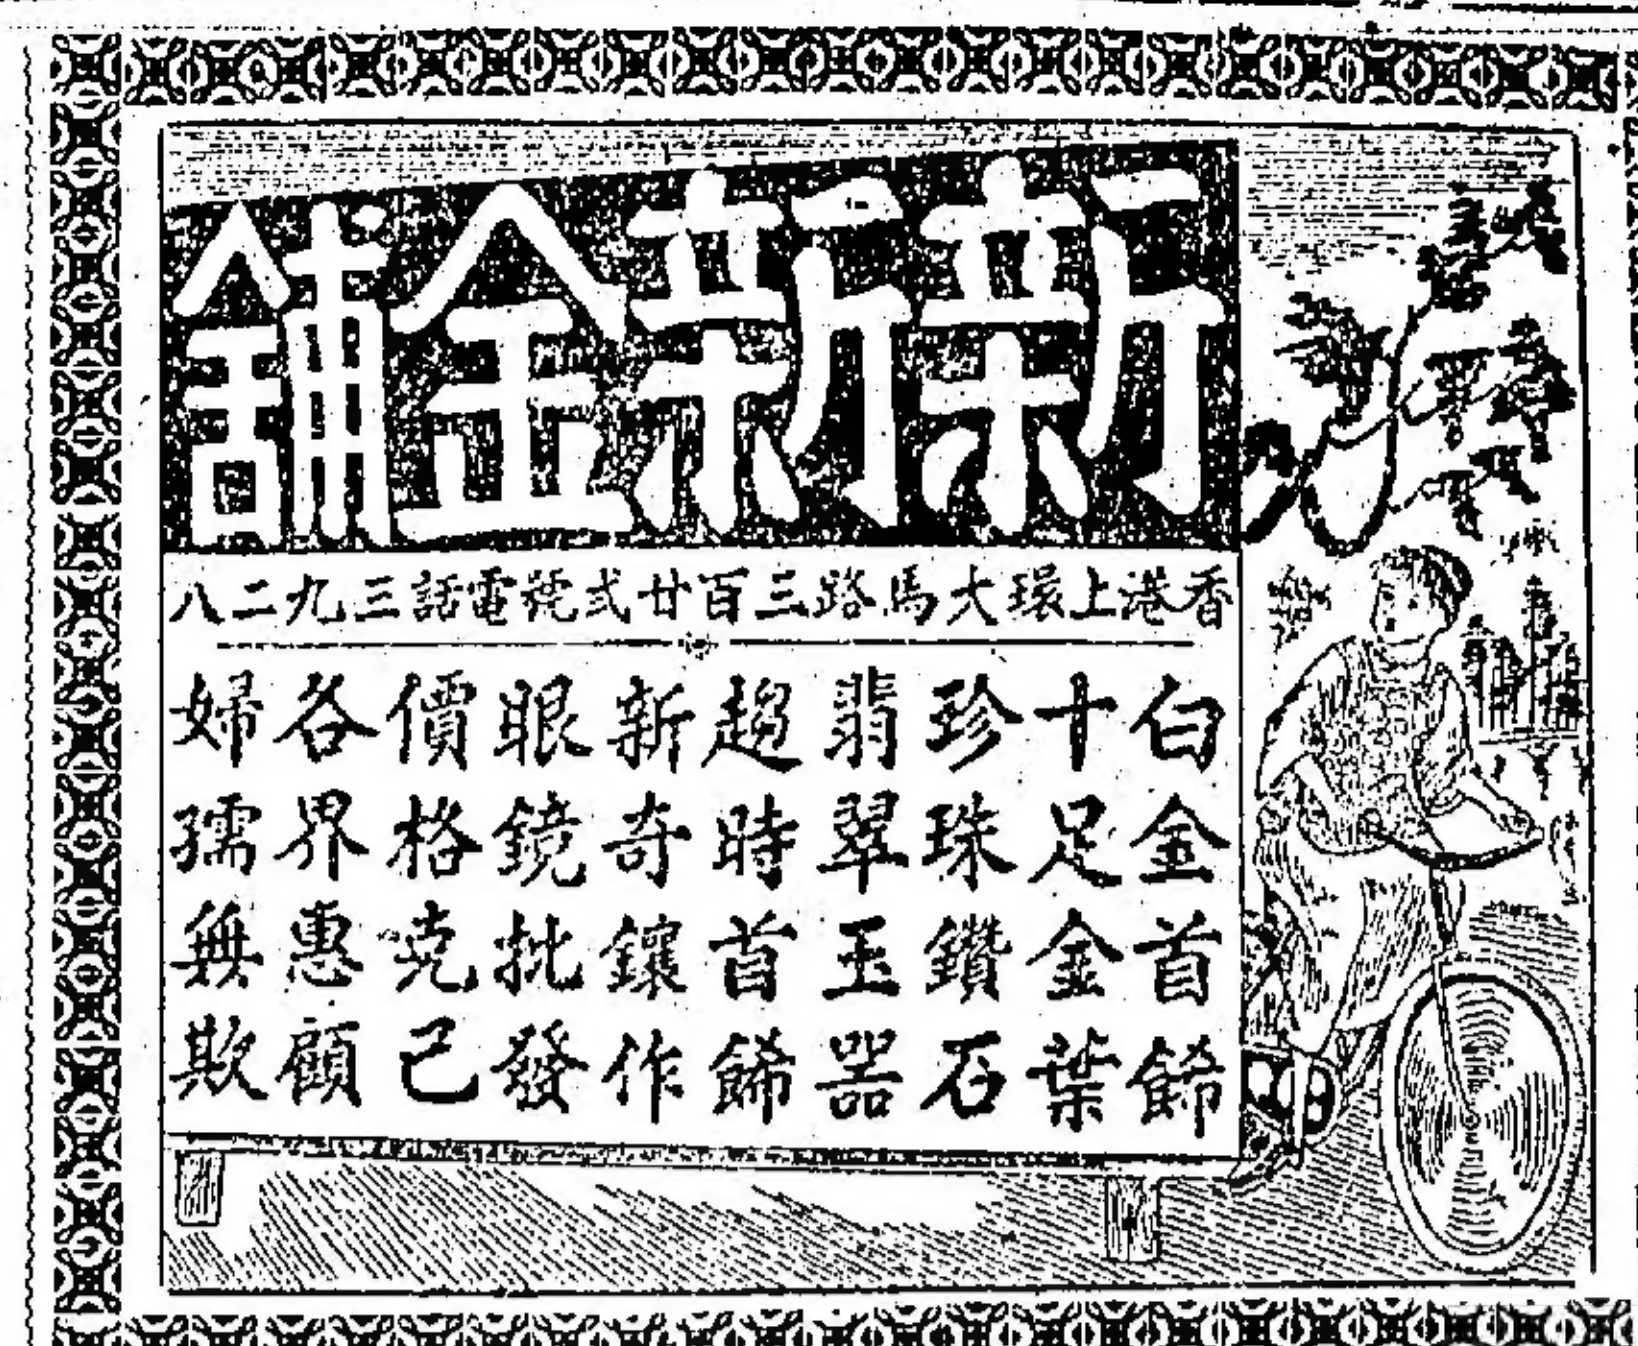 新新金舖
香港上環大馬路三百廿弍號電話三九二八
白金首飾
十足金葉
珍珠鑽石
翡翠玉器
趨時首飾
新奇鑲作
眼鏡批發
價格克己
各界惠顧
婦孺無欺